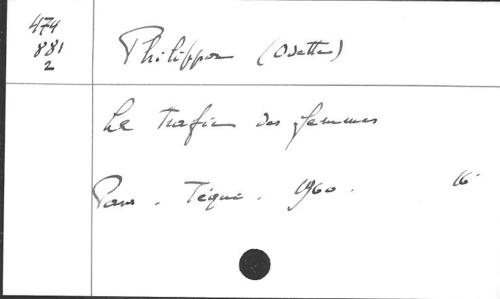 474
881
2
Philippon (Odette)
Le Trafic des femmes
Paris. Téqui. 1960. 16°